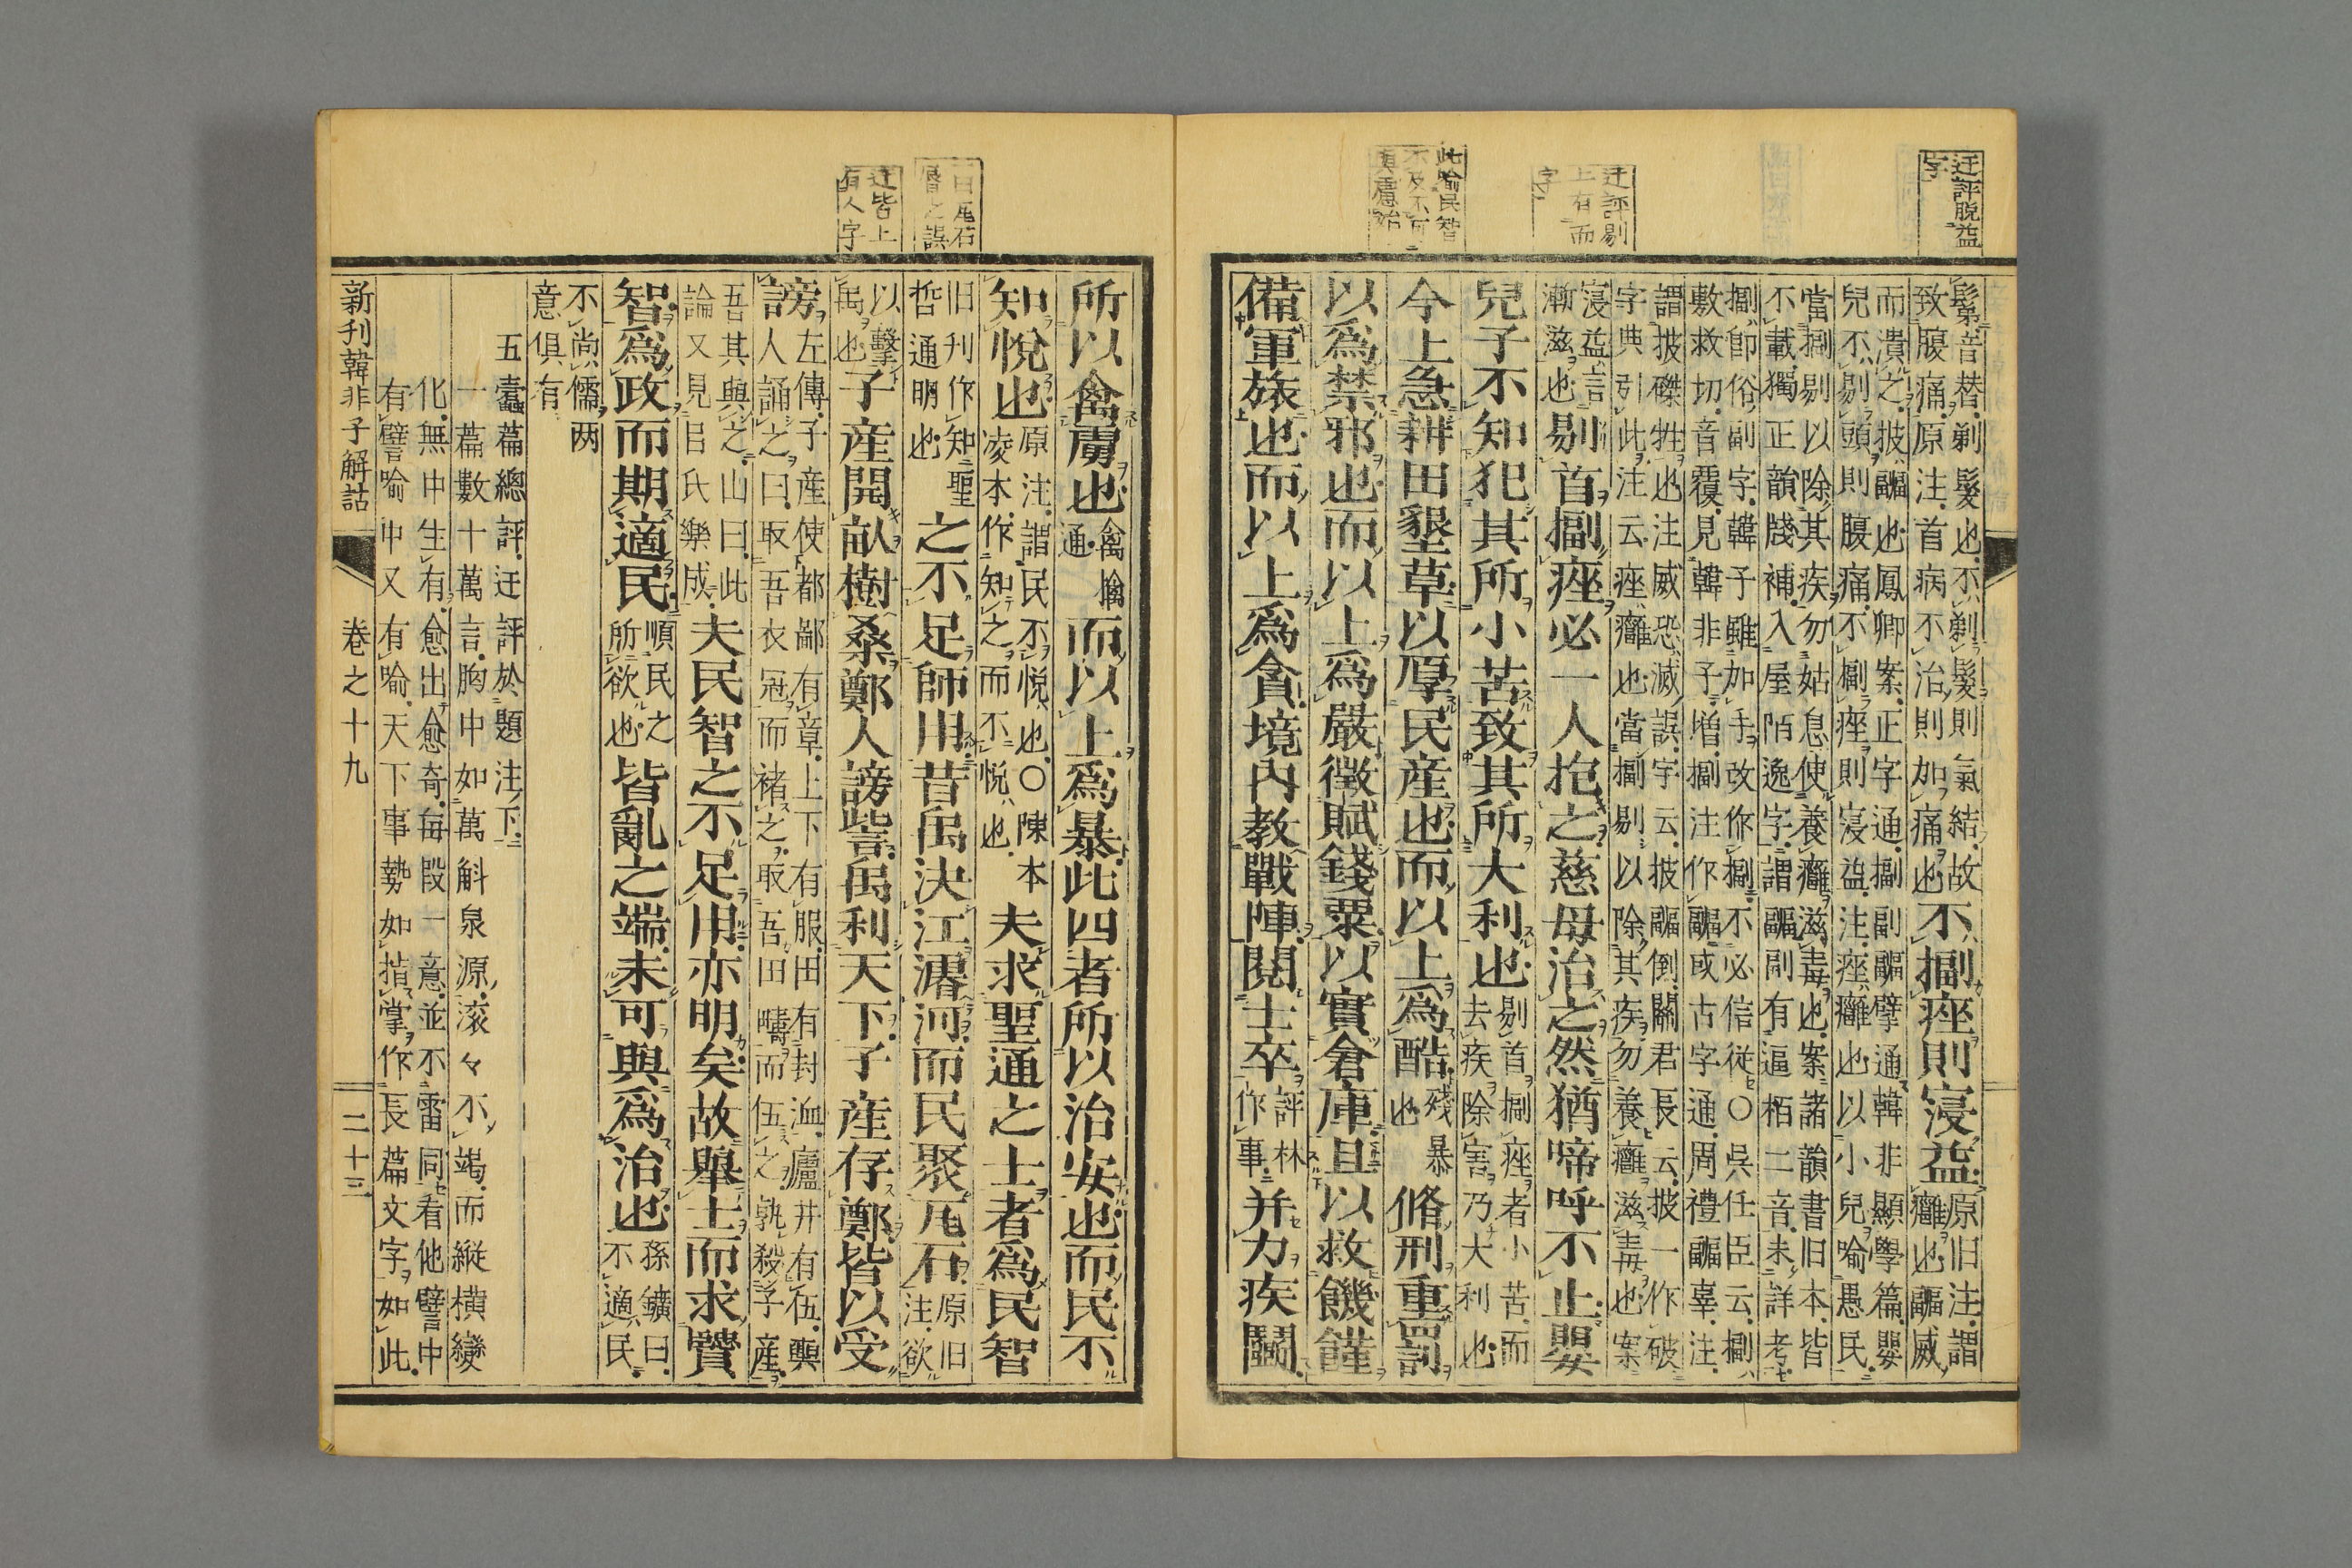 迂評脱益
字
鬄音替剃髮也不剃髮則氣結故
致腹痛原注首病不治則加痛也
不揊痤則寖益
原旧注謂
癰也疈威
而潰之披疈也鳳卿案正字通揊副疈擘通韓非顯學篇嬰
兒不剔頭則腹痛不揊痤則寖益注痤癰也以小兒喻愚民
當揊剔以除其疾勿姑息使養癰滋毒也案諸韻書旧本皆
不載獨正韻牋補入屋陌逸字謂疈副有逼栢二音未詳考
揊即俗副字韓子雖加手改作揊不必信從〇吳任臣云揊
敷救切音覆見韓非子増揊注作疈或古字通周禮疈辜注
謂披磔牲也注威恐滅誤字云披疈倒關君長云披一作破
字典引此注云痤癰也當揊剔以除其疾勿養癰滋毒也案
寖益言
漸滋也
剔首揊痤必一人抱之慈母治之然猶啼呼不止嬰
兒子不知犯其所小苦致其所大利也
剔首揊痤者小苦而
去疾除害乃大利也
今上急耕田墾草以厚民産也而以上爲酷
殘暴
也
脩刑重罰
以爲禁邪也而以上爲嚴徴賦錢粟以實倉庫且以救饑饉
備軍旅也而以上爲貪境内教戰陣閲士卒
評林
作事
并力疾鬭
迂評剔
上有而
字
此喻民智
不及不可
與慮始
所以禽虜也
禽擒
通
而以上爲暴此四者所以治安也而民不
知悅也
原注謂民不悅也〇陳本
凌本作知之而不悅也
夫求聖通之士者爲民智
旧刋作知聖
哲通明也
之不足師用昔禹決江濬河而民聚瓦石
原旧
注欲
以擊
禹也
子産開畝樹桑鄭人謗訾禹利天下子産存鄭皆以受
謗
左傳子産使都鄙有章上下有服田有封洫廬井有伍輿
人誦之曰取吾衣冠而褚之取吾田疇而伍之孰殺子産
吾其與之山曰此
論又見呂氏樂成
夫民智之不足用亦明矣故舉士而求賢
智爲政而期適民
順民之
所欲也
皆亂之端未可與爲治也
孫鑛曰
不適民
不尚儒两
意俱有
五蠹篇總評迂評於題注下
一篇數十萬言胸中如萬斛泉源滚々不竭而縱横變
化無中生有愈出愈奇每段一意並不雷同看他譬中
有譬喻中又有喻天下事勢如指掌作長篇文字如此
曰瓦石
脣之誤
迂皆上
有人字
新刋韓非子解詁
卷之十九
二十三